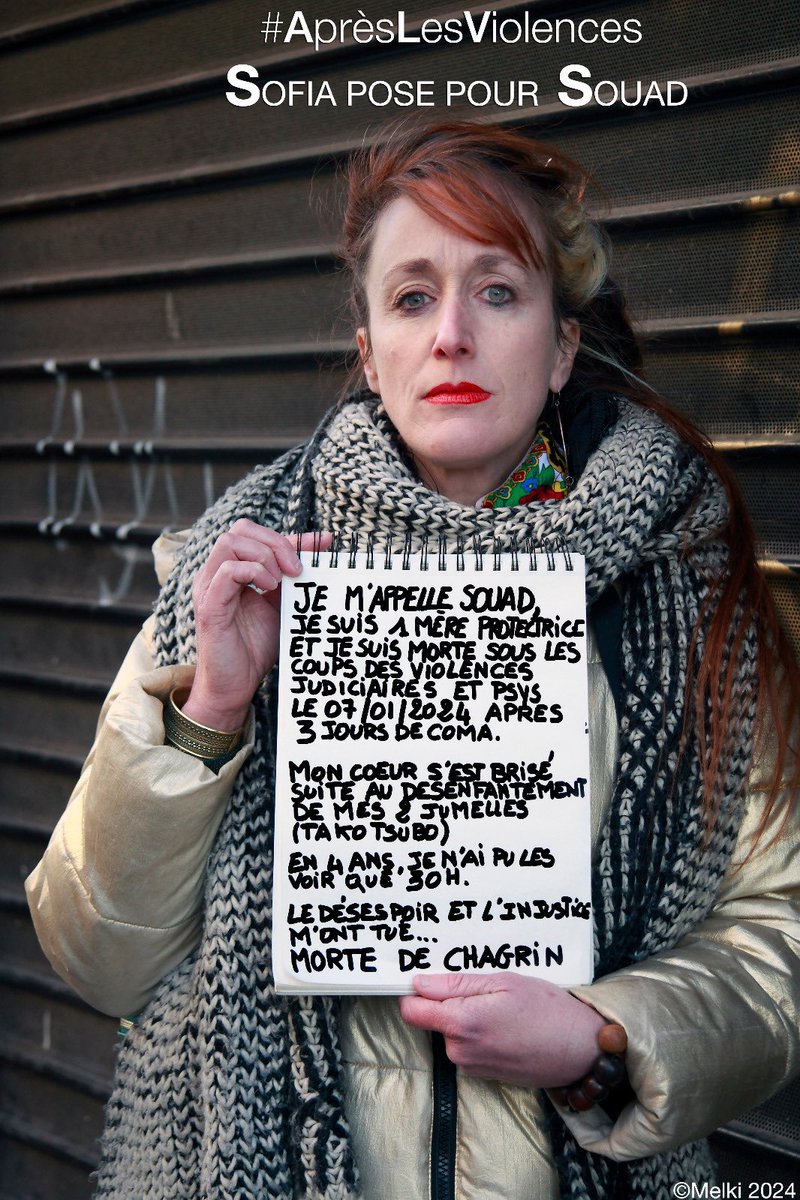 #AprèsLesViolences
SOFIA POSE POUR SOUAD
JE M'APPELLE SOUAD,
JE SUIS 1 MÈRE PROTECTRICE
ET JE SUIS MORTE SOUS LES
COUPS DES VIOLENCES
JUDICIAIRES ET PSYS
LE 07/01/2024 APRÈS
3 JOURS DE COMA.
MON COEUR S'EST BRISÉ
SUITE AU DESENFANTEMENT
DE MES 2 JUMELLES
(TAKOTSUBO)
EN 4 ANS, JE N'AI PU LES
VOIR QUE 30H.
LE DÉSESPOIR ET L'INJUSTICE
M'ONT TUÉ...
MORTE DE CHAGRIN
©Melki 2024